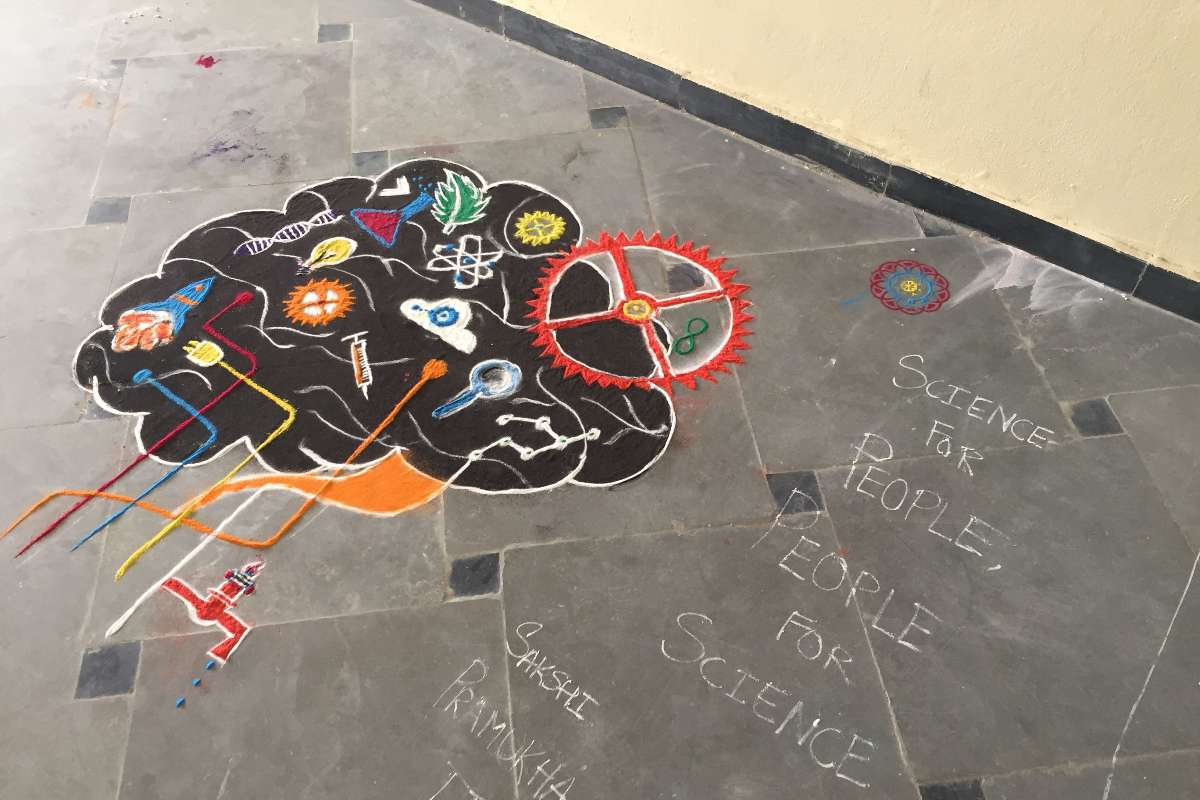 SCIENCE
FOR
PEOPLE,
PEOPLE
FOR
SCIENCE
SAKSHI
PRAMUKHA